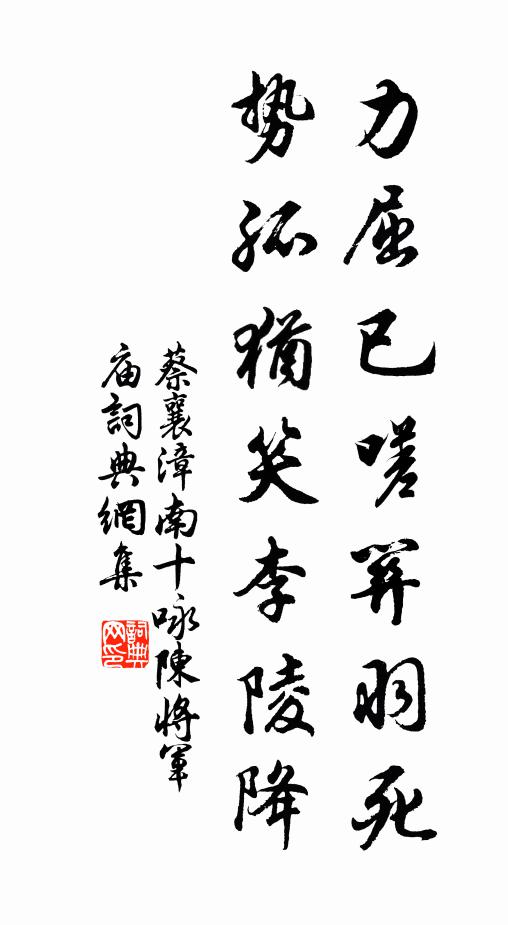 力屈已嗟关羽死
势孤犹笑李陵降
蔡襄漳南十咏陳將軍
庙詞典網集
詞典网印